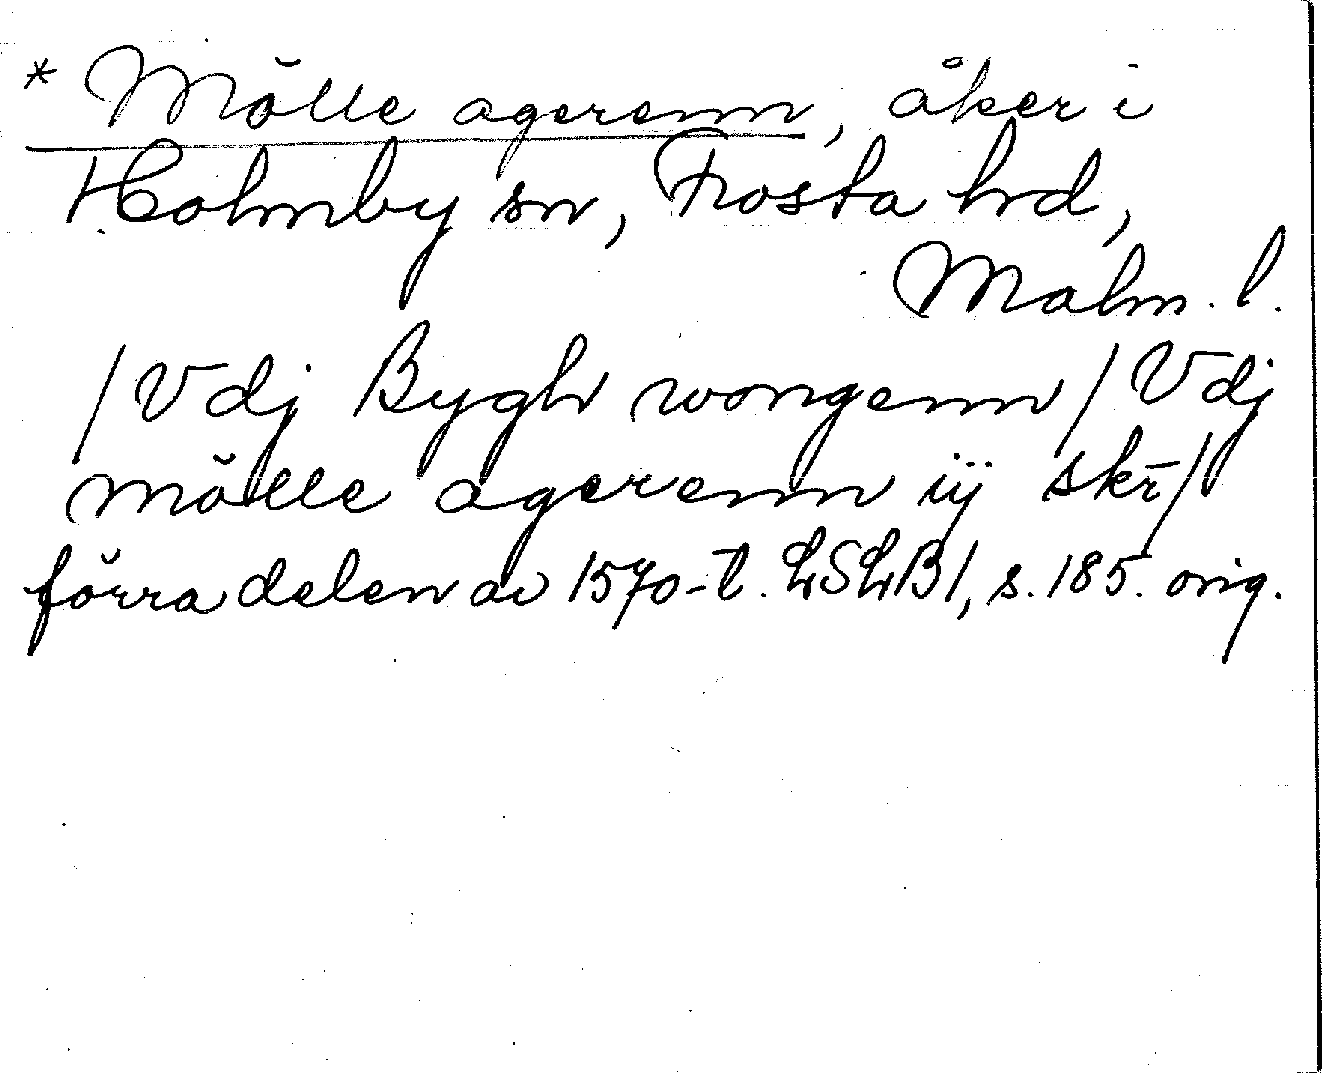 * Mölle agerenn, åker i
Holmby sn, Frosta hd,
Malm. l.
/Vdj Bygh wongenn/ Vdj
mölle agerenn iij skr̄/
förra delen av 1570-t. LSLB1, s. 185. orig.